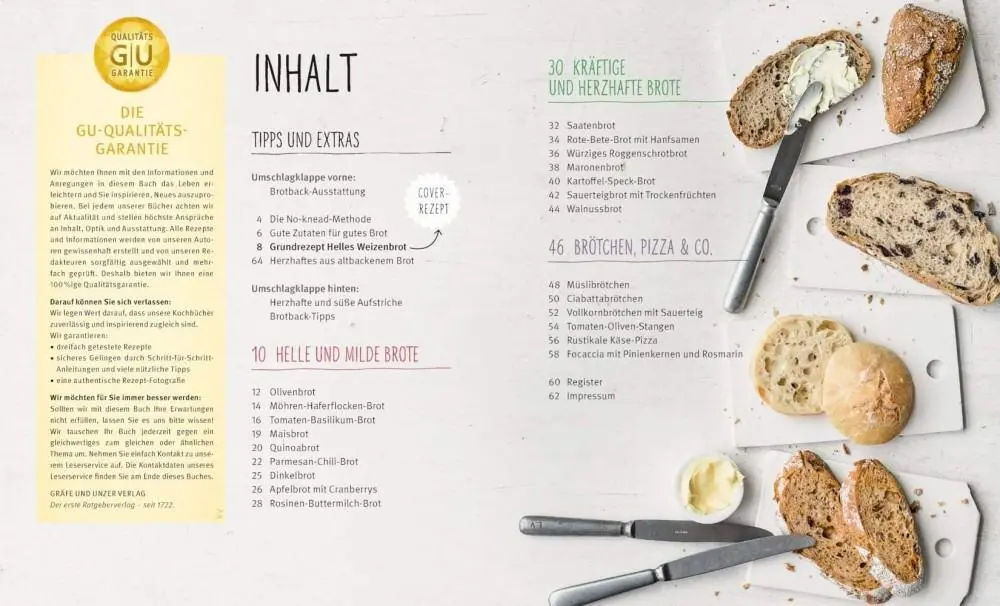 QUALITÄTS
G|U
GARANTIE
DIE
GU-QUALITÄTS-
GARANTIE
Wir möchten Ihnen mit den Informationen und
Anregungen in diesem Buch das Leben er-
leichtern und Sie inspirieren, Neues auszupro-
bieren. Bei jedem unserer Bücher achten wir
auf Aktualität und stellen höchste Ansprüche
an Inhalt, Optik und Ausstattung. Alle Rezepte
und Informationen werden von unseren Auto-
ren gewissenhaft erstellt und von unseren Re-
dakteuren sorgfältig ausgewählt und mehr-
fach geprüft. Deshalb bieten wir Ihnen eine
100%ige Qualitätsgarantie.
Darauf können Sie sich verlassen:
Wir legen Wert darauf, dass unsere Kochbücher
zuverlässig und inspirierend zugleich sind.
Wir garantieren:
• dreifach getestete Rezepte
• sicheres Gelingen durch Schritt-für-Schritt-
Anleitungen und viele nützliche Tipps
• eine authentische Rezept-Fotografie
Wir möchten für Sie immer besser werden:
Sollten wir mit diesem Buch Ihre Erwartungen
nicht erfüllen, lassen Sie es uns bitte wissen!
Wir tauschen Ihr Buch jederzeit gegen ein
gleichwertiges zum gleichen oder ähnlichen
Thema um. Nehmen Sie einfach Kontakt zu unse-
rem Leserservice auf. Die Kontaktdaten unseres
Leserservice finden Sie am Ende dieses Buches.
GRÄFE UND UNZER VERLAG
Der erste Ratgeberverlag – seit 1722.
INHALT
TIPPS UND EXTRAS
Umschlagklappe vorne:
Brotback-Ausstattung
4 Die No-knead-Methode
6 Gute Zutaten für gutes Brot
8 Grundrezept Helles Weizenbrot
64 Herzhaftes aus altbackenem Brot
COVER-
REZEPT
Umschlagklappe hinten:
Herzhafte und süße Aufstriche
Brotback-Tipps
10 HELLE UND MILDE BROTE
12 Olivenbrot
14 Möhren-Haferflocken-Brot
16 Tomaten-Basilikum-Brot
19 Maisbrot
20 Quinoabrot
22 Parmesan-Chili-Brot
25 Dinkelbrot
26 Apfelbrot mit Cranberrys
28 Rosinen-Buttermilch-Brot
30 KRÄFTIGE
UND HERZHAFTE BROTE
32 Saatenbrot
34 Rote-Bete-Brot mit Hanfsamen
36 Würziges Roggenschrotbrot
38 Maronenbrot
40 Kartoffel-Speck-Brot
42 Sauerteigbrot mit Trockenfrüchten
44 Walnussbrot
46 BRÖTCHEN, PIZZA & CO.
48 Müslibrötchen
50 Ciabattabrötchen
52 Vollkornbrötchen mit Sauerteig
54 Tomaten-Oliven-Stangen
56 Rustikale Käse-Pizza
58 Focaccia mit Pinienkernen und Rosmarin
60 Register
62 Impressum